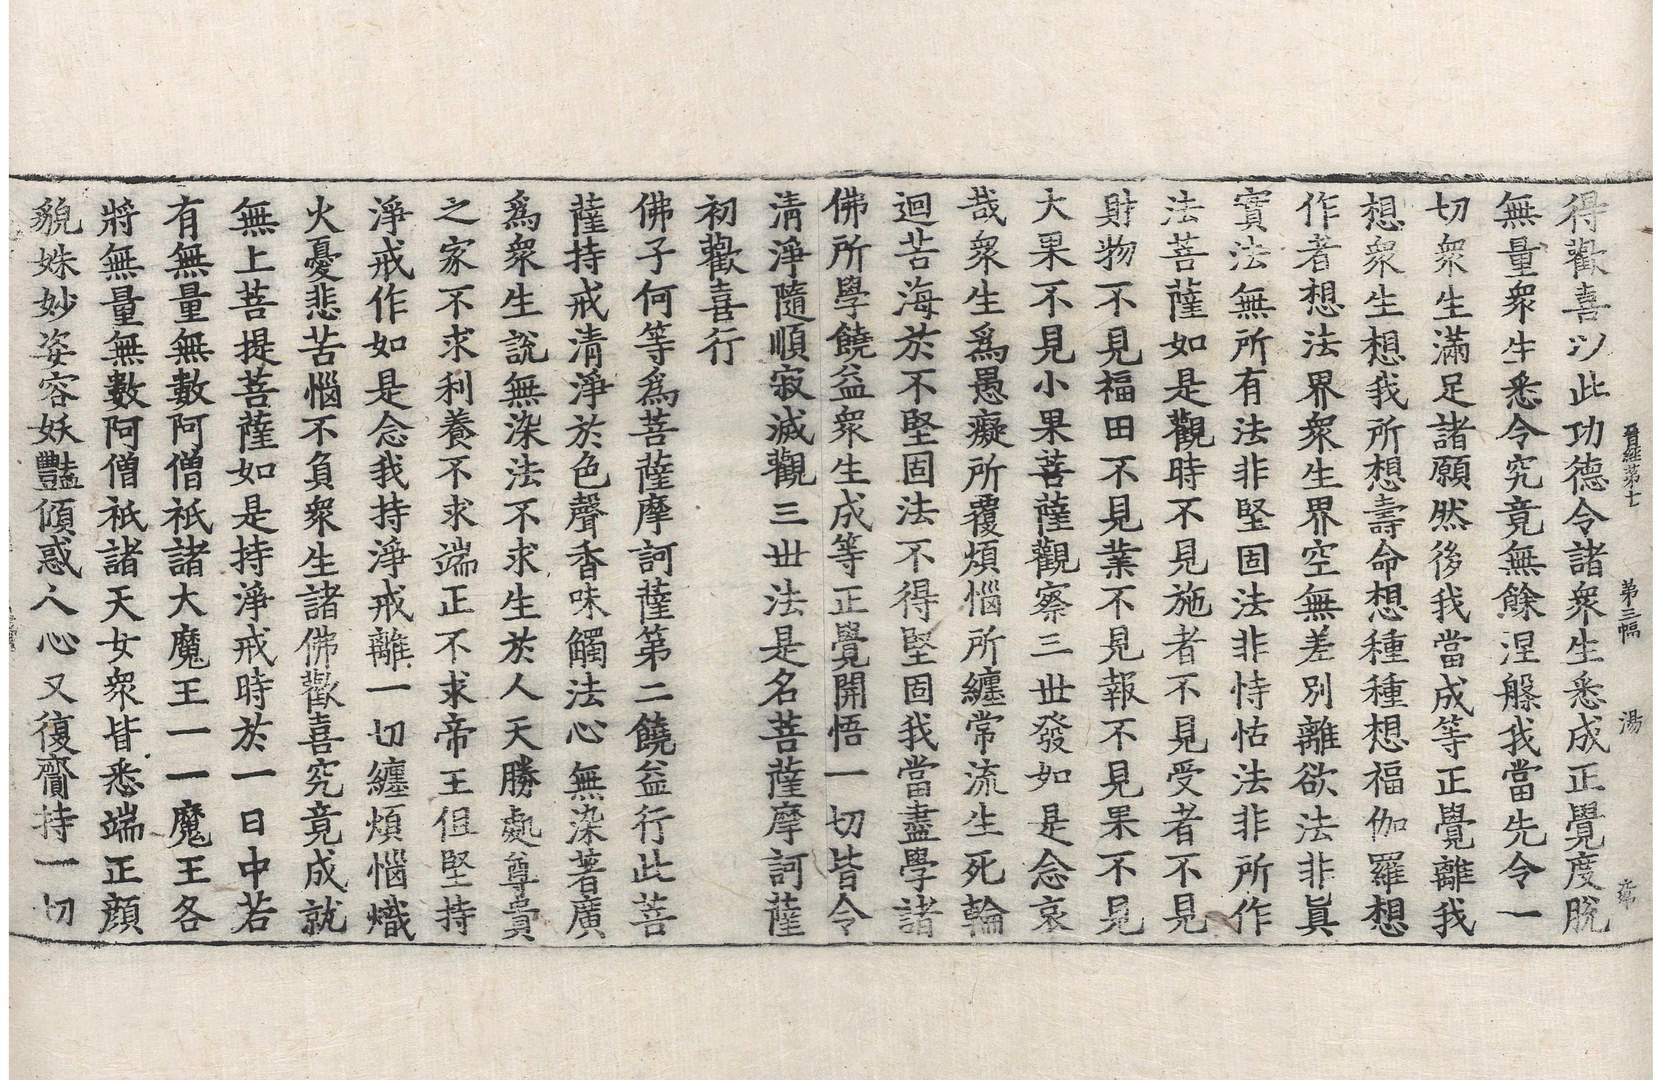 晉經第七 第三幅 湯
得歡喜以此功德令諸衆生悉成正覺度脫
無量衆生悉令究竟無餘涅槃我當先令一
切衆生滿足諸願然後我當成等正覺離我
想衆生想我所想壽命想種種想福伽羅想
作者想法界衆生界空無差別離欲法非眞
實法無所有法非堅固法非恃怙法非所作
法菩薩如是觀時不見施者不見受者不見
財物不見福田不見業不見報不見果不見
大果不見小果菩薩觀察三世發如是念哀
哉衆生爲愚癡所覆煩惱所纏常流生死輪
迴苦海於不堅固法不得堅固我當盡學諸
佛所學饒益衆生成等正覺開悟一切皆令
清淨隨順寂滅觀三世法是名菩薩摩訶薩
初歡喜行
佛子何等爲菩薩摩訶薩第二饒益行此菩
薩持戒清淨於色聲香味觸法心無染著廣
爲衆生說無染法不求生於人天勝處尊貴
之家不求利養不求端正不求帝王但堅持
淨戒作如是念我持淨戒離一切纏煩惱熾
火憂悲苦惱不負衆生諸佛歡喜究竟成就
無上菩提菩薩如是持淨戒時於一日中若
有無量無數阿僧祇諸大魔王一一魔王各
將無量無數阿僧祇諸天女衆皆悉端正顏
貌姝妙姿容妖豔傾惑人心又復齎持一切